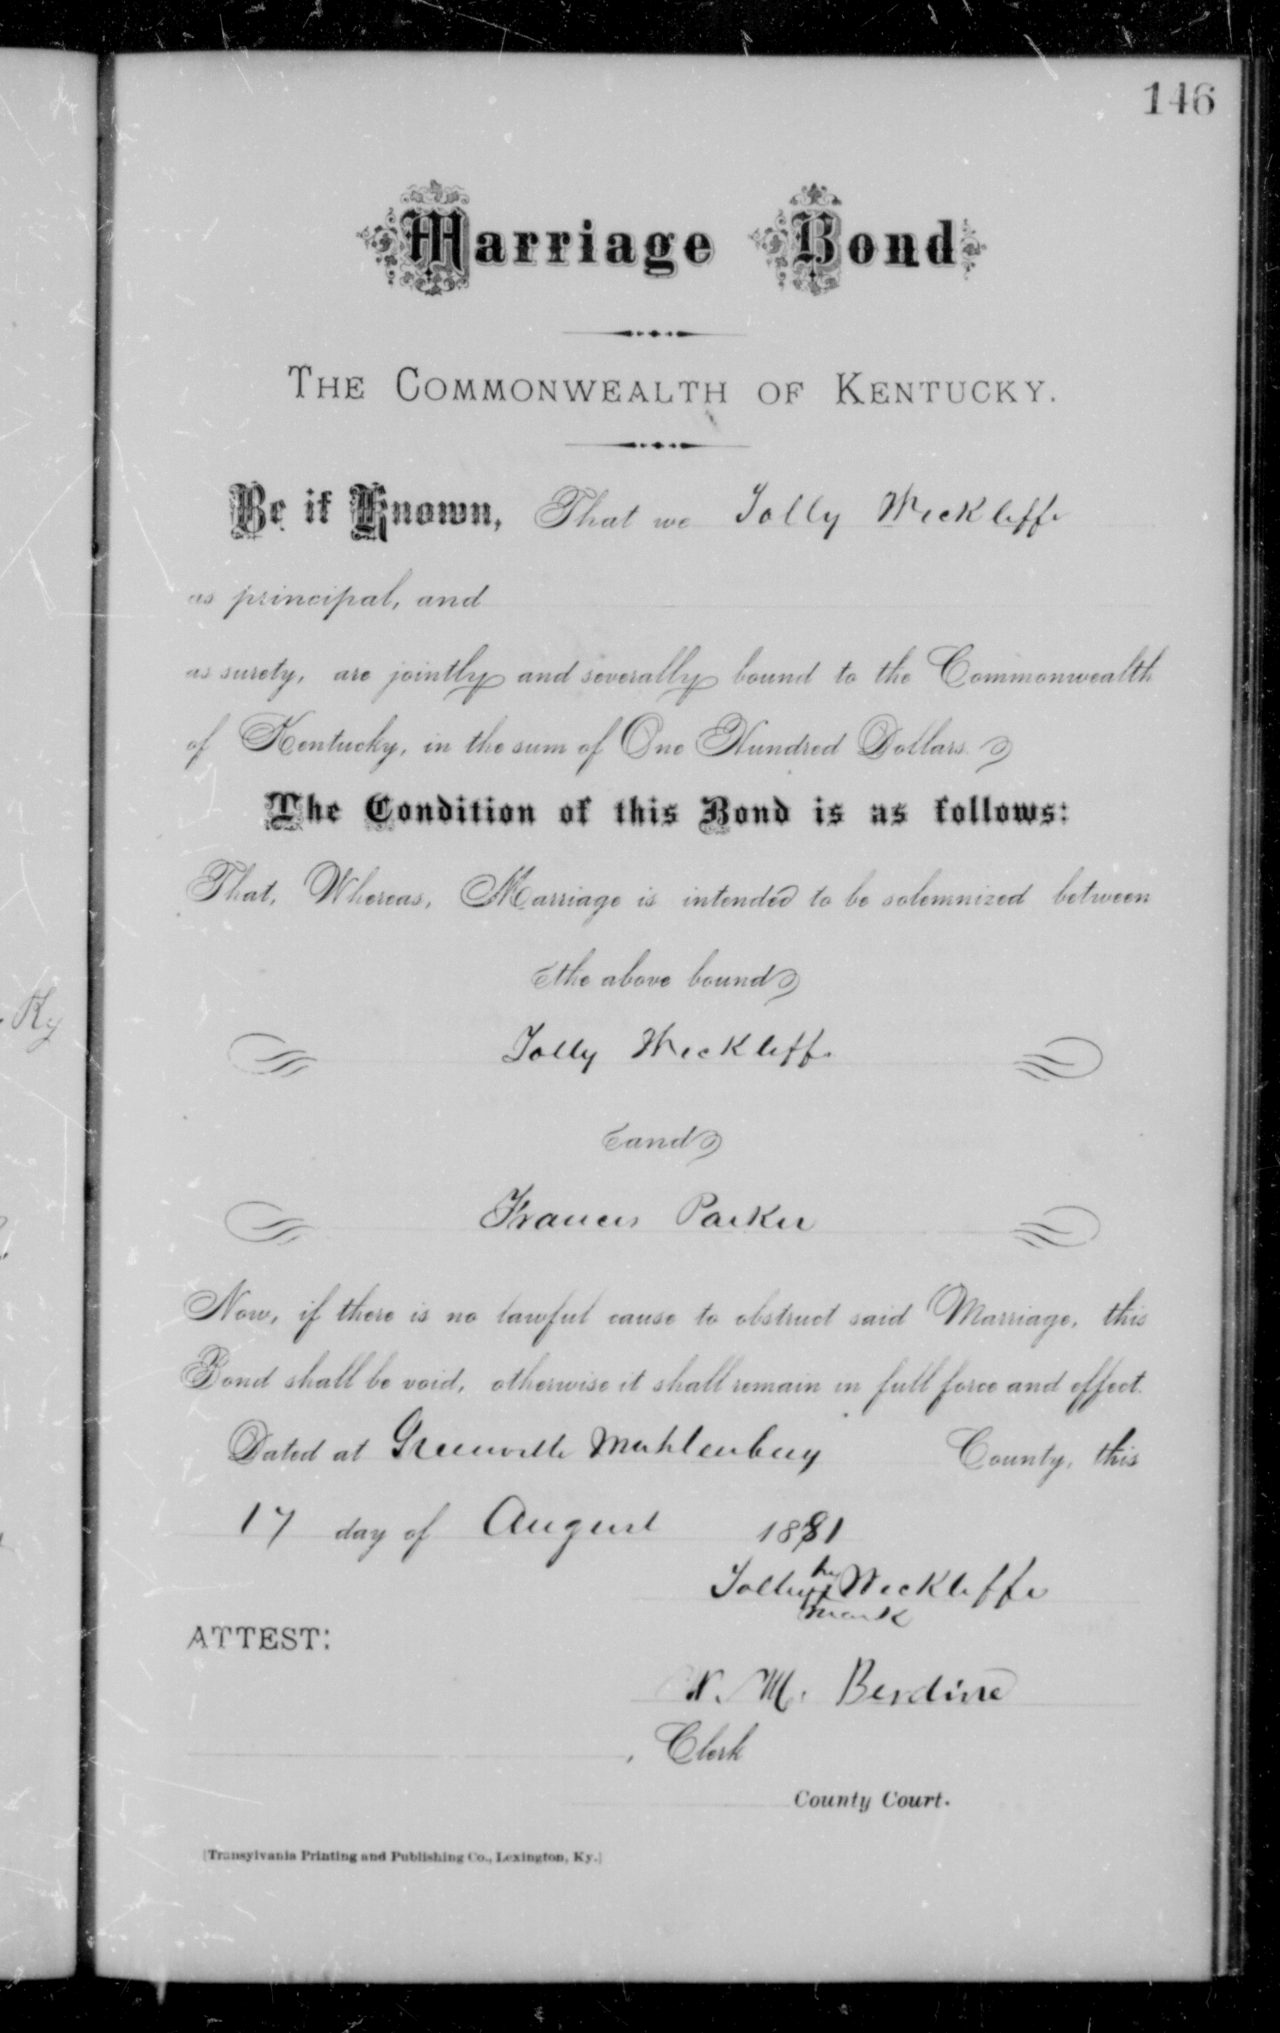 146
Marriage Bond
THE COMMONWEALTH OF KENTUCKY.
Be it Known, That we Tolly Weckliffe
as principal, and
as surety, are jointly and severally bound to the Commonwealth
of Kentucky, in the sum of One Hundred Dollars.
The Condition of this Bond is as follows:
That, Whereas, Marriage is intended to be solemnized between
the above bound
Tolly Weckliffe
and
Francis Parker
Now, if there is no lawful cause to obstruct said Marriage, this
Bond shall be void, otherwise it shall remain in full force and effect.
Dated at Greenville Muhlenburg County, this
17 day of August 1881
his
Tolly Weckliffe
mark
ATTEST:
N. M. Berdine
, Clerk
County Court.
[Transylvania Printing and Publishing Co., Lexington, Ky.]
Ky